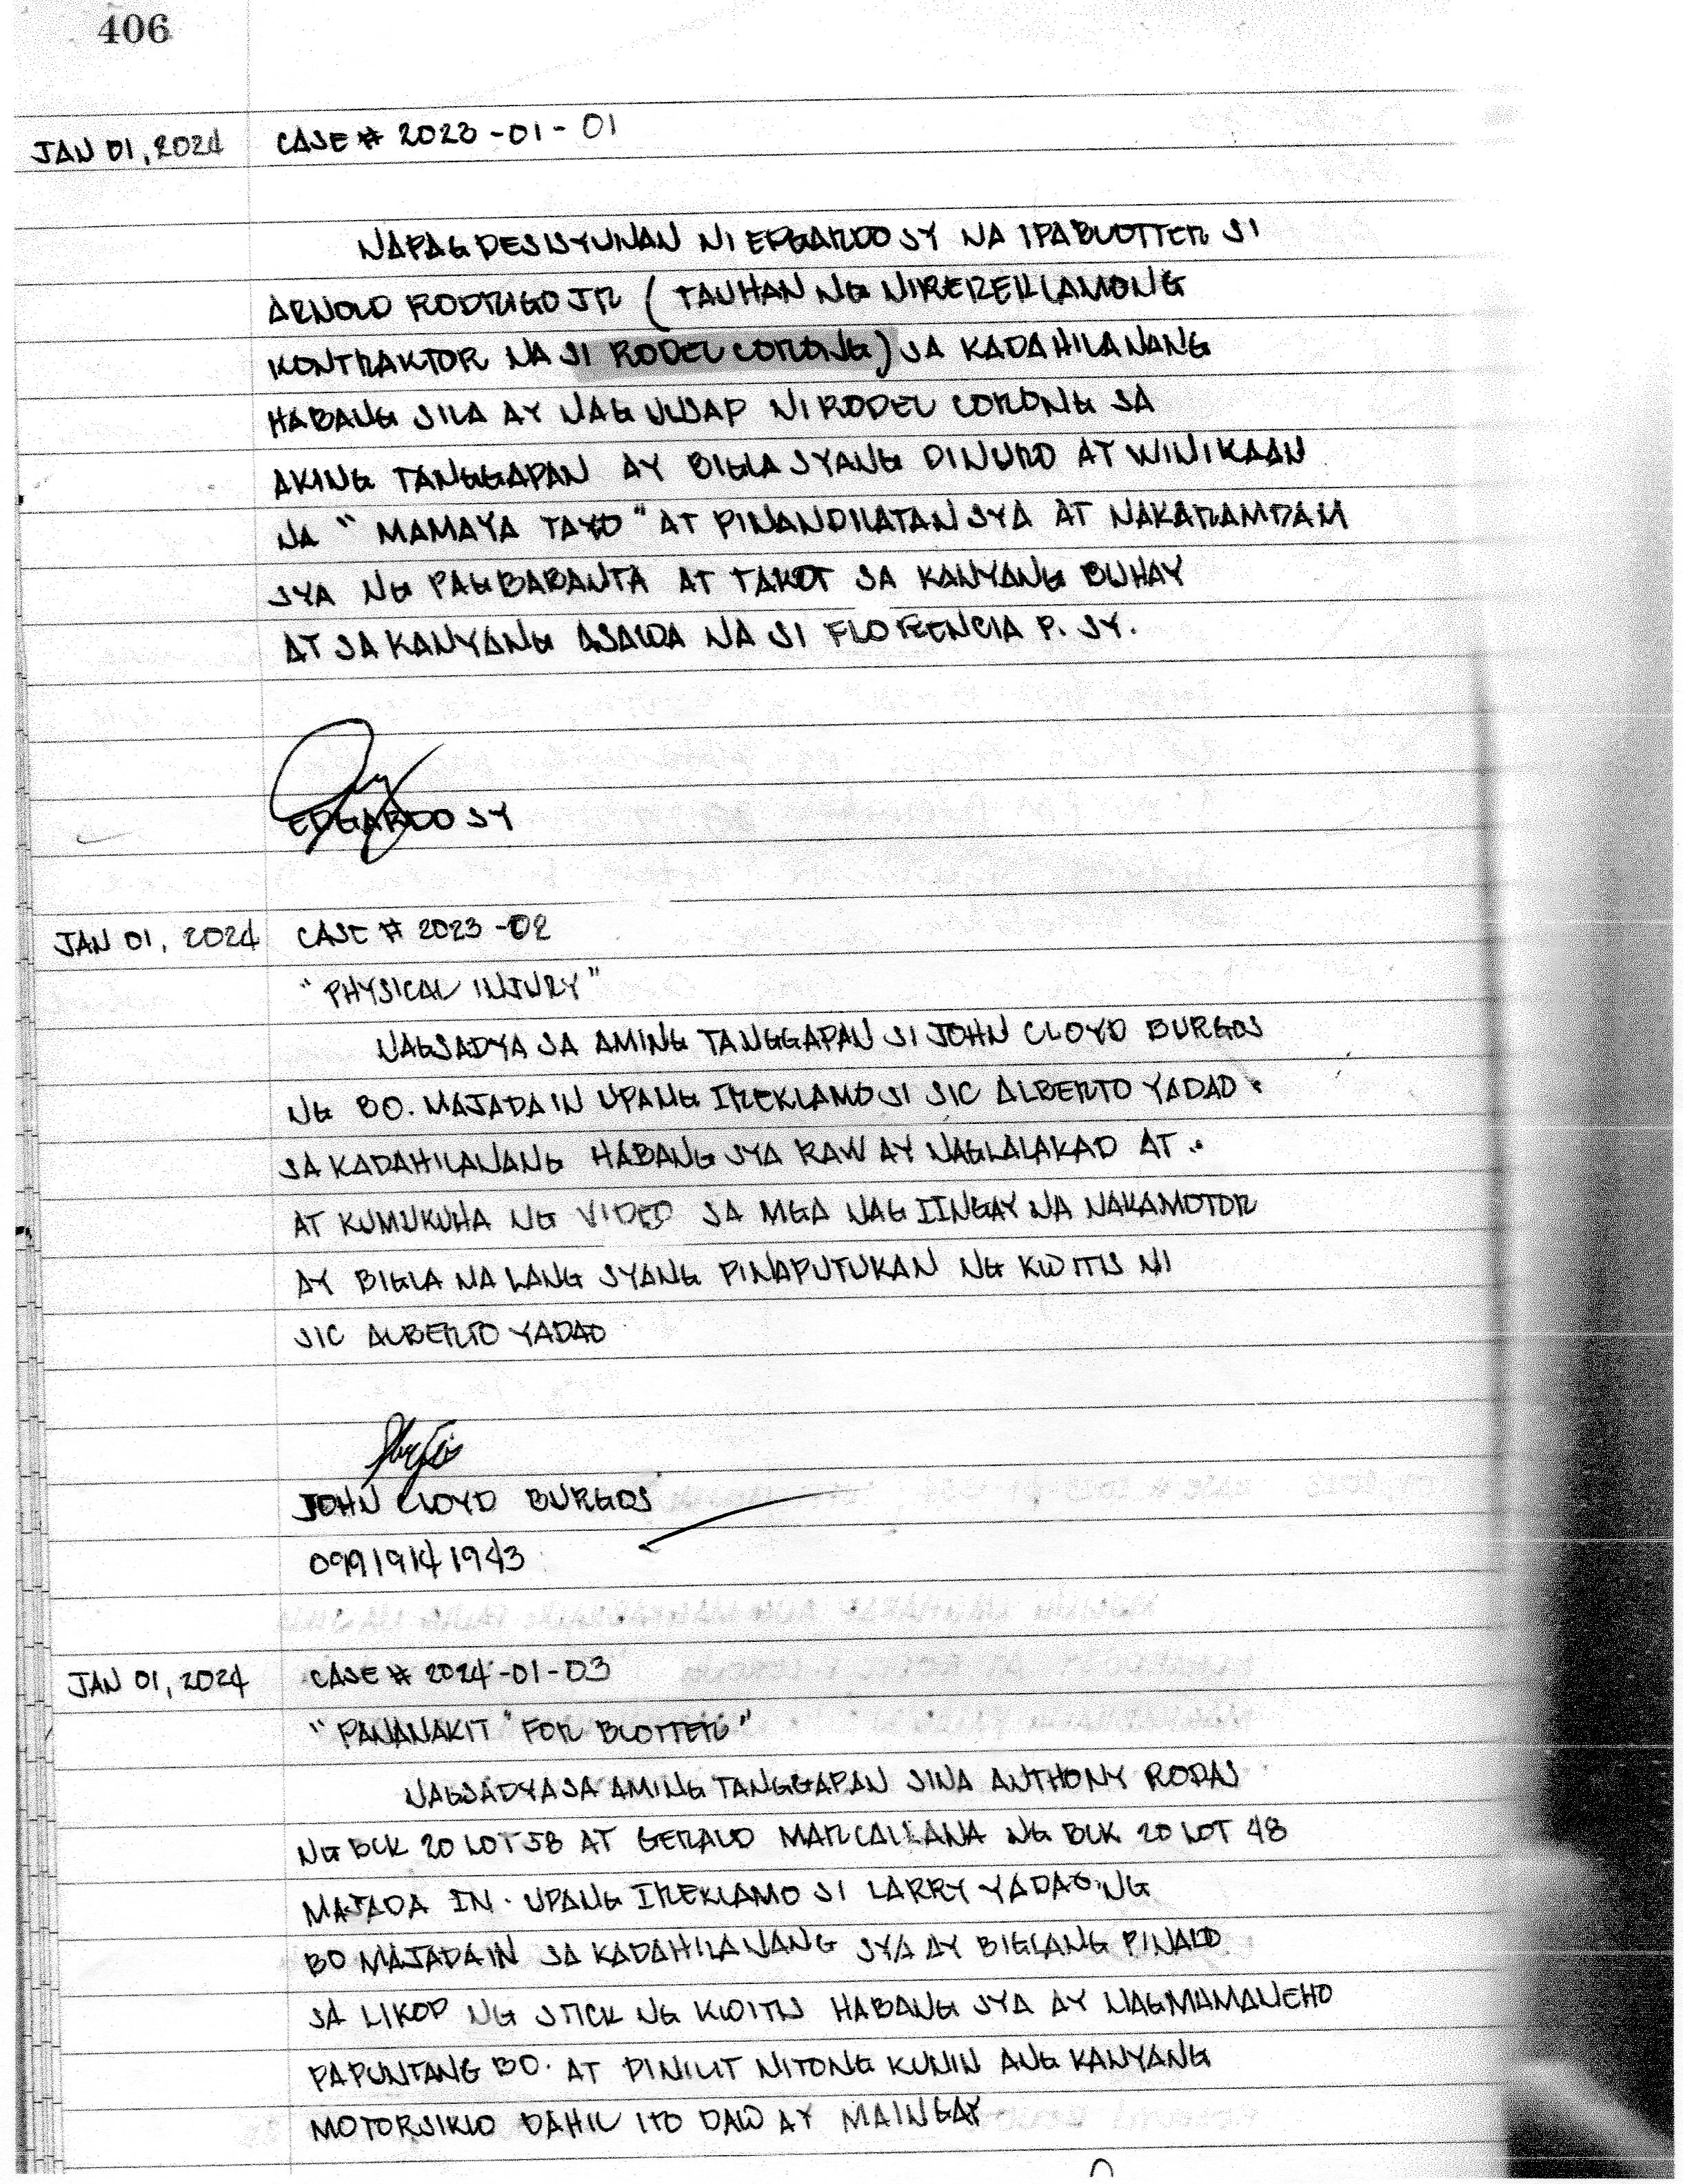 406
JAN 01, 2024 CASE # 2023-01-01
NAPAG DESISYUNAN NI EDGARDO SY NA IPABLOTTER SI
ARNOLD RODRIGO JR (TAUHAN NG NIREREKLAMONG
KONTRAKTOR NA SI RODEL CORONG) SA KADAHILANANG
HABANG SILA AY NAG UUSAP NI RODEL CORONG SA
AKING TANGGAPAN AY BIGLA SYANG DINURO AT WINIKAAN
NA "MAMAYA TAYO" AT PINANDILATAN SYA AT NAKARAMDAM
SYA NG PAGBABANTA AT TAKOT SA KANYANG BUHAY
AT SA KANYANG ASAWA NA SI FLORENCIA P. SY.
EDGARDO SY
JAN 01, 2024 CASE # 2023-02
"PHYSICAL INJURY"
NAGSADYA SA AMING TANGGAPAN SI JOHN CLOYD BURGOS
NG BO. MAJADA IN UPANG IREKLAMO SI SIC ALBERTO YADAO
SA KADAHILANANG HABANG SYA RAW AY NAGLALAKAD AT
AT KUMUKUHA NG VIDEO SA MGA NAG IINGAY NA NAKAMOTOR
AY BIGLA NA LANG SYANG PINAPUTUKAN NG KWITIS NI
SIC ALBERTO YADAO
JOHN CLOYD BURGOS
09919141943
JAN 01, 2024 CASE # 2024-01-03
"PANANAKIT" FOR BLOTTER"
NAGSADYA SA AMING TANGGAPAN SINA ANTHONY RODAS
NG BLK 20 LOT 58 AT GERALD MARCALLANA NG BLK 20 LOT 48
MAJADA IN. UPANG IREKLAMO SI LARRY YADAO NG
BO MAJADA IN SA KADAHILANANG SYA AY BIGLANG PINALO
SA LIKOD NG STICK NG KWITIS HABANG SYA AY NAGMAMANEHO
PAPUNTANG BO. AT PINILIT NITONG KUNIN ANG KANYANG
MOTORSIKLO DAHIL ITO DAW AY MAINGAY